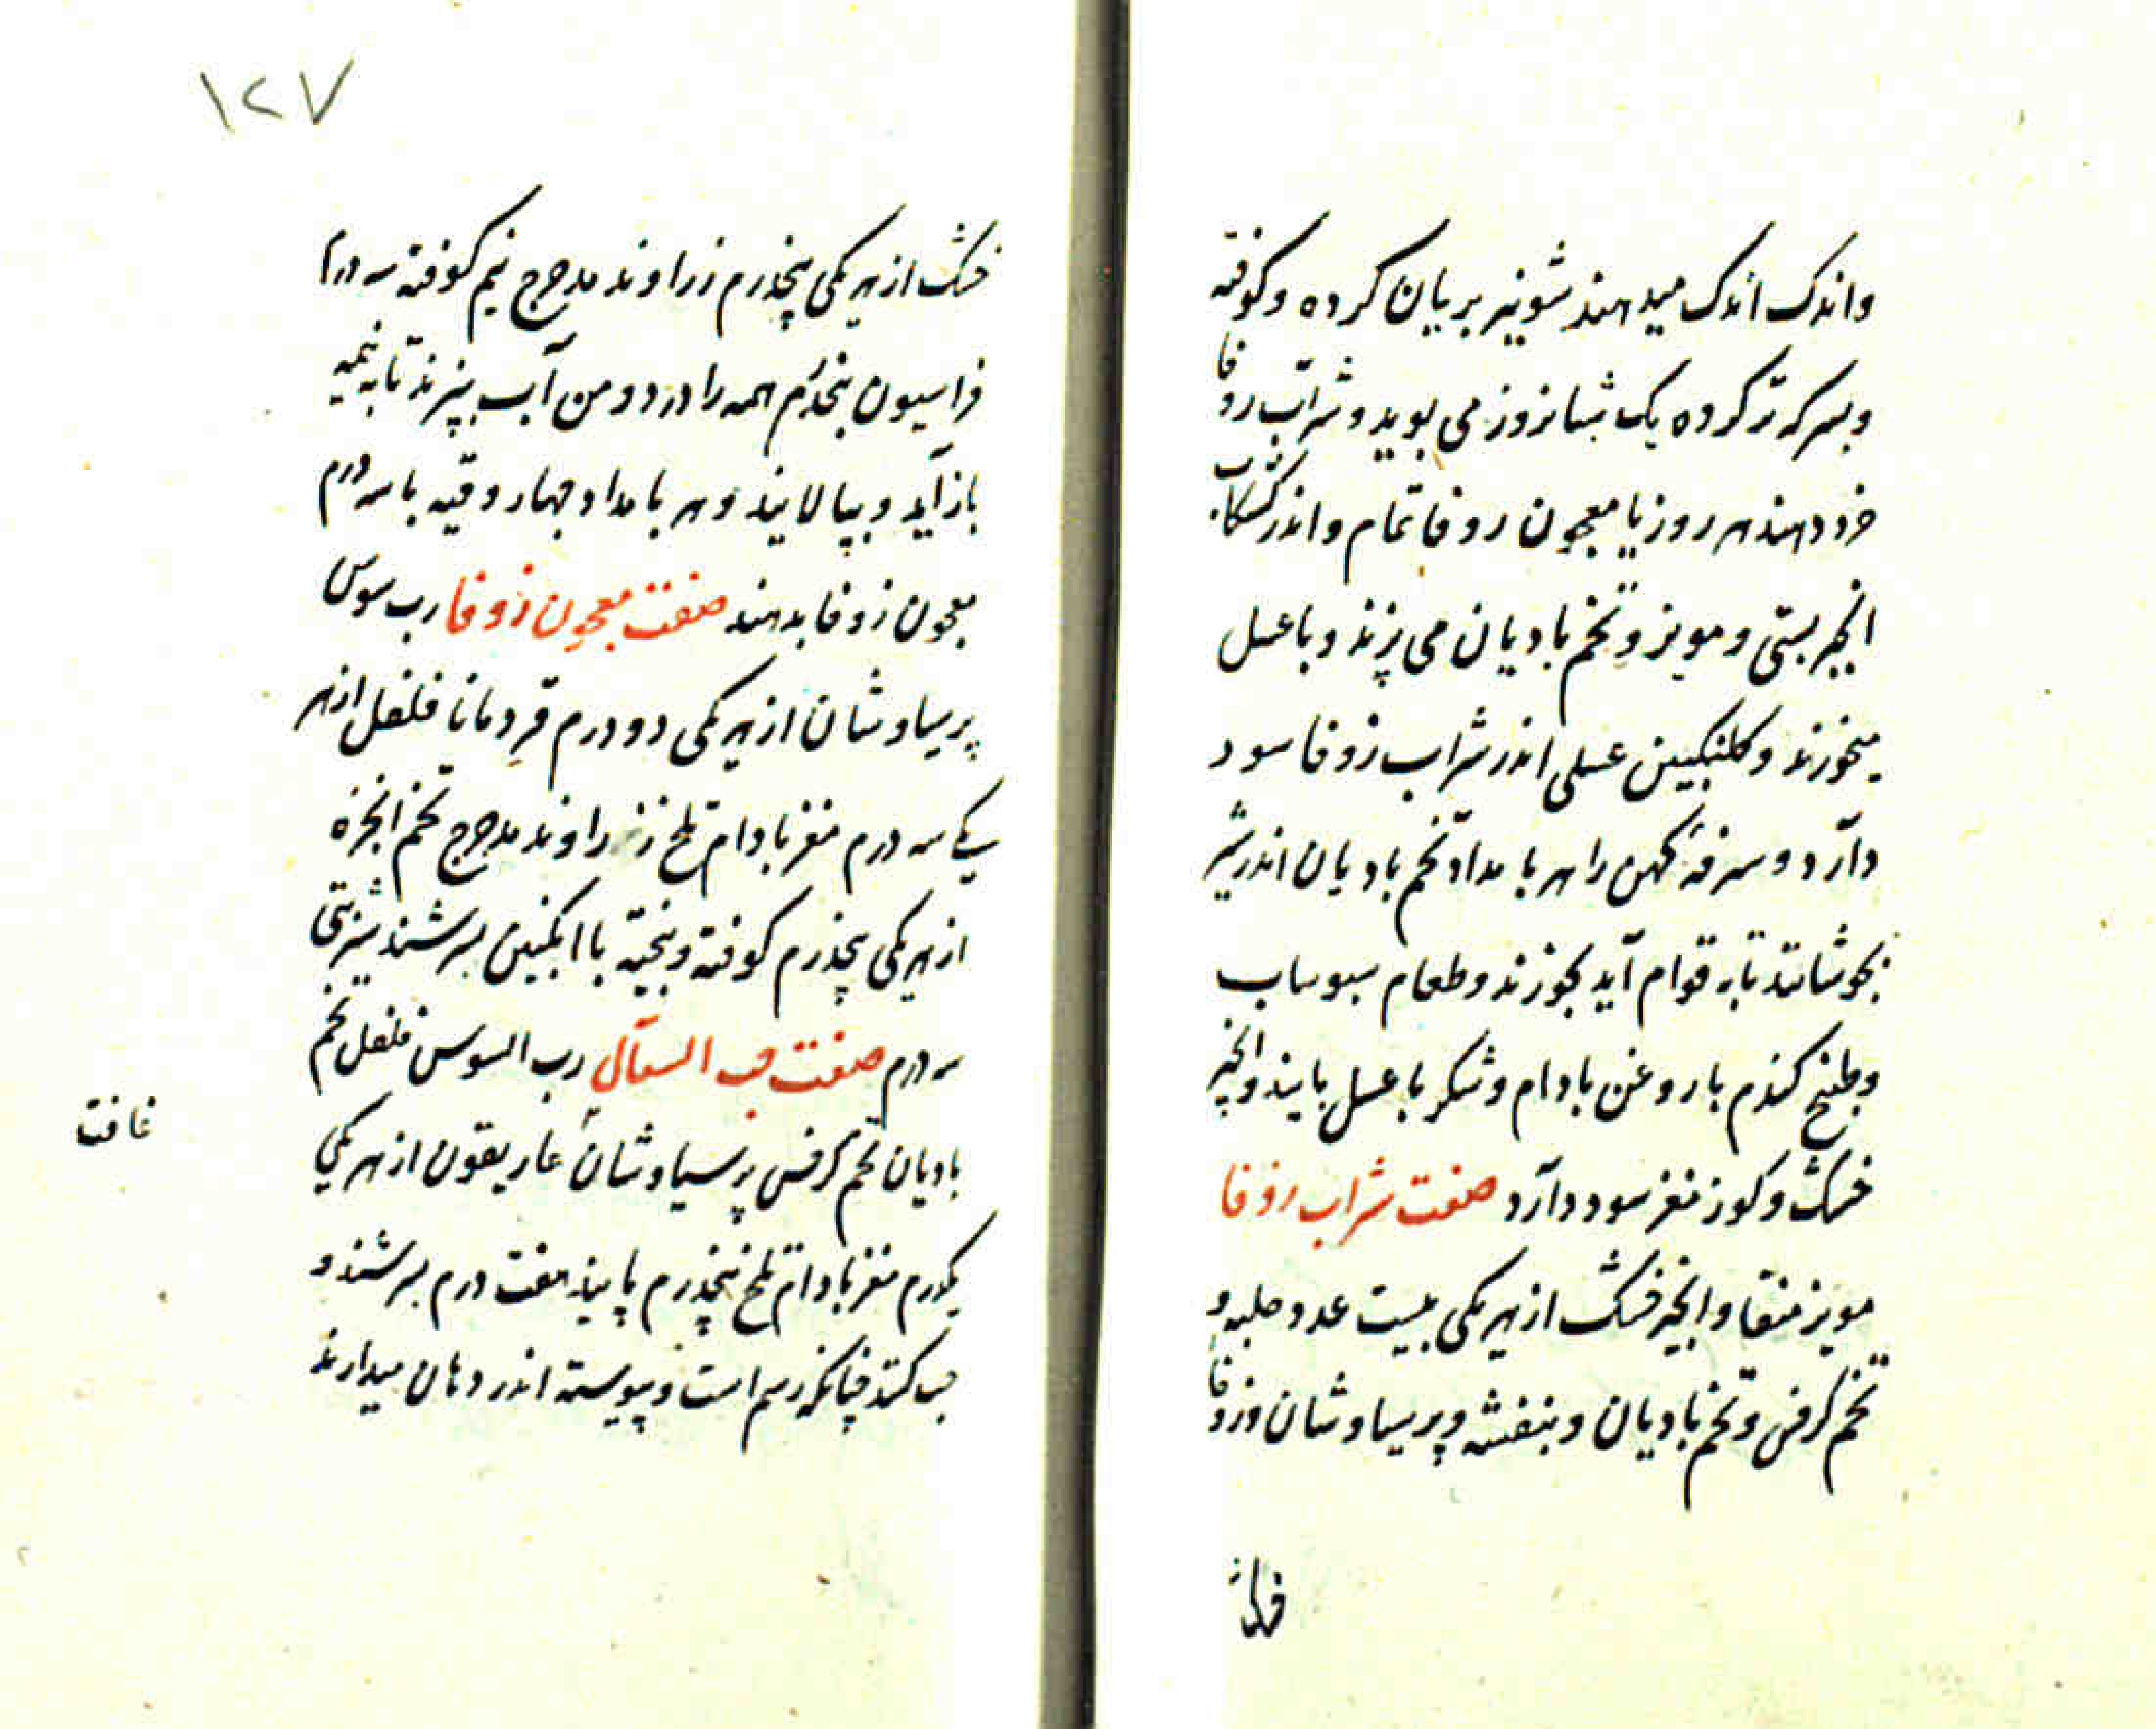 واندک اندک میدهند شونیز بریان کرده و کوفته
و بسرکه تر کرده یک شبانروز می بوید و شراب زوفا
خرد دهند هر روز یا معجون زوفا تمام و اندر کشکاب
انجیر بستی و مویز و تخم بادیان می پزند و با عسل
میخورند و کلنکبین عسلی اندر شراب زوفا سود
دارد و سرفهٔ کهن را هر بامداد تخم بادیان اندر شیر
بجوشانند تا به قوام آید بخورند و طعام سبوساب
و طبیخ کندم با روغن بادام و شکر با عسل یابند و انجیر
خشک و کوز مغز سود دارد صفت شراب زوفا
مویز منقا و انجیر خشک از هر یکی بیست عدد حلبه و
تخم کرفس و تخم بادیان و بنفشه و پرسیاوشان و زوفا
خشک
۱۲۷
خشک از هر یکی پنجدرم زراوند مدحرج نیم کوفته سه درم
فراسیون پنجدرم همه را در دو من آب بپزند تا به نیمه
باز آید و بپالایند و هر بامداد چهار وقیه با سه درم
معجون زوفا بدهند صفت معجون زوفا رب سوس
پرسیاوشان از هر یکی دو درم قردمانا فلفل از هر
یک سه درم مغز بادام تلخ زراوند مدحرج تخم انجره
از هر یکی پنجدرم کوفته و پخته با انکبین بسرشند شربتی
سه درم صفت حب السعال رب السوس فلفل تخم
بادیان تخم کرفس پرسیاوشان غاریقون از هر یکی
غافت
یکدرم مغز بادام تلخ پنجدرم پانیذ هفت درم بسرشند و
حب کنند چنانکه رسم است و پیوسته اندر دهان میدارند